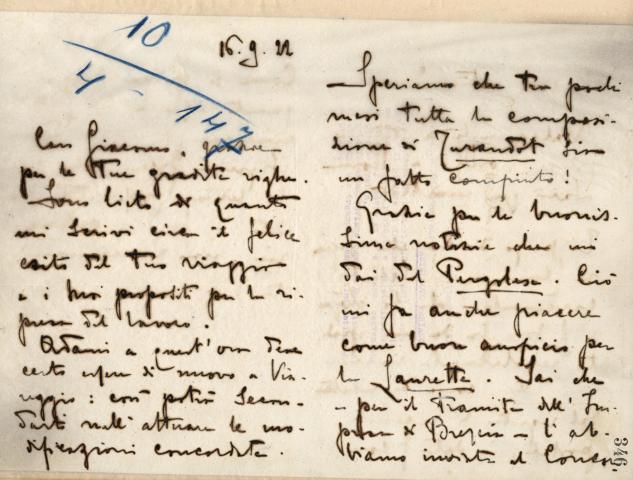 10
4 - 147
16.9.22
Caro Giacomo, grazie
per le tue gradite righe.
Sono lieto di quanto
mi scrivi circa il felice
esito del tuo viaggio
e i tuoi propositi per la ri-
presa del lavoro.
Adami a quest'ora deve
certo esser di nuovo a Via-
reggio: così potrà secon-
darti nell'attuare le mo-
dificazioni concordate.
Speriamo che tra pochi
mesi tutta la composi-
zione di Turandot sia
un fatto compiuto!
Grazie per le buonis-
sime notizie che mi
dai del Pergolesi. Ciò
mi fa anche piacere
come buon auspicio per
la Lauretta. Sai che
- per il tramite dell'Im-
presa di Brescia - l'ab-
biamo inviata al Concor-
346